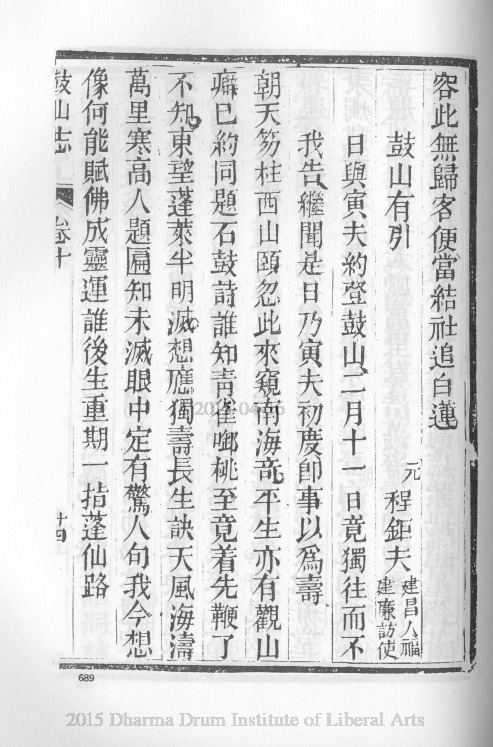 容此無歸客便當結社追白蓮
鼓山有引
元 程鉅夫 建昌人福建廉訪使
日與寅夫約登鼓山二月十一日竟獨往而不
我告繼聞是日乃寅夫初度即事以爲壽
朝天笏柱西山頤忽此來窺南海竒平生亦有觀山
癖已約同題石鼓詩誰知青雀啣桃至竟着先鞭了
不知東望蓬萊半明滅想應獨壽長生訣天風海濤
萬里寒高人題匾知未滅眼中定有驚人句我今想
像何能賦佛成靈運誰後生重期一指蓬仙路
鼓山志 卷十 十四
689
2015 Dharma Drum Institute of Liberal Arts